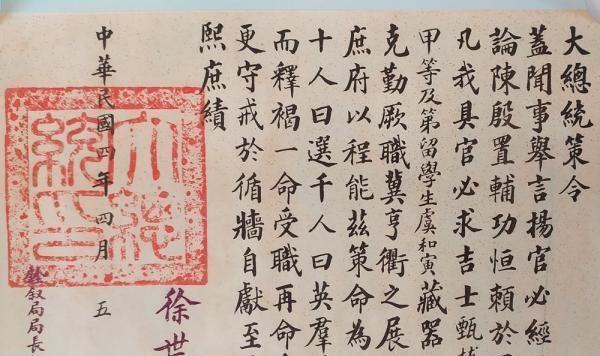 大總統策令
蓋聞事舉言揚官必經
論陳殷置輔功恒賴於
凡我具官必求吉士甄
甲等及第留學生虞和寅藏器
克勤厥職冀亨衢之展
庶府以程能茲策命為
十人曰選千人曰英羣
而釋褐一命受職再命
更守戒於循牆自獻至
熙庶績
中華民國四年四月 五
大總統印
徐世
銓敘局局長